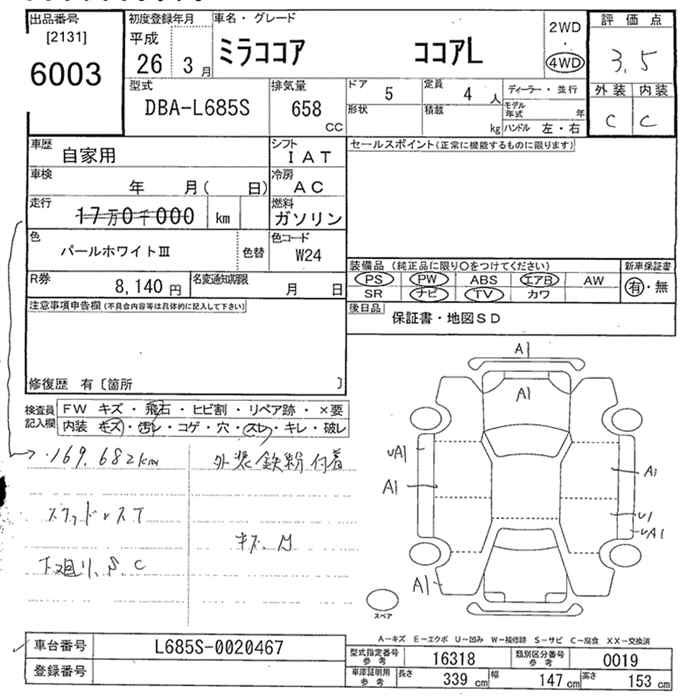 出品番号
[2131]
6003
初度登録年月
平成
26 3月
車名・グレード
ミラココア ココアL
2WD
・
4WD
評価点
3.5
外装 内装
C C
型式
DBA-L685S
排気量
658
CC
ドア
5
定員
4 人
形状
積載
kg
ディーラー・並行
モデル年式 年
ハンドル 左・右
車歴
自家用
シフト
IAT
車検
年 月( 日)
冷房
AC
走行
17万0千000 km
燃料
ガソリン
色
パールホワイトⅢ
色替
色コード
W24
R券
8,140円
名変通知期限
月 日
セールスポイント(正常に機能するものに限ります)
装備品 (純正品に限り○をつけてください)
新車保証書
PS PW ABS エアB AW
SR ナビ TV カワ
有・無
後日品
保証書・地図SD
注意事項申告欄(不具合内容等は具体的に記入して下さい)
修復歴 有〔箇所 〕
検査員記入欄
FW キズ・飛石・ヒビ割・リペア跡・×要
内装 キズ・汚レ・コゲ・穴・スレ・キレ・破レ
169,682km
外装鉄粉付着
下廻り、S、C
A1
A1
uA1
A1
A1
U1
uA1
A1
スペア
A－キズ E－エクボ U－凹み W－補修跡 S－サビ C－腐食 XX－交換済
車台番号
L685S-0020467
登録番号
型式指定番号
参考
16318
類別区分番号
参考
0019
車庫証明用
参考
長さ
339 cm
幅
147 cm
高さ
153 cm